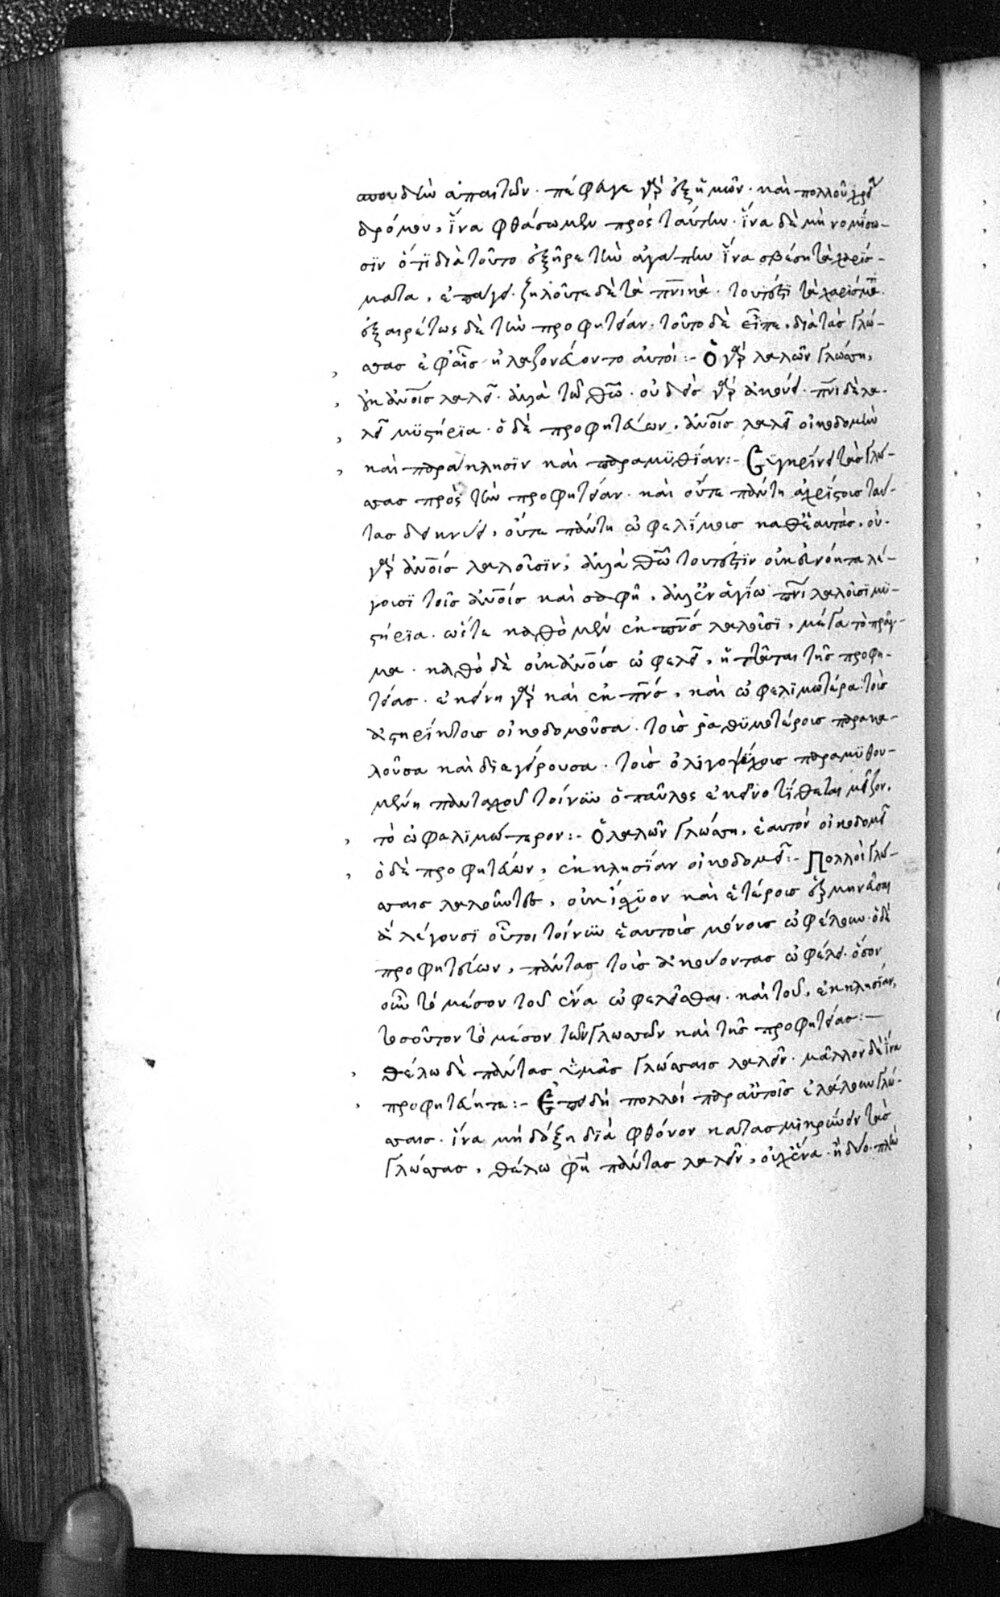 σπουδὴν ἀπαιτῶν· πέφυγε γὰρ ἐξ ἡμῶν· καὶ πολλοῦ χρεία
δρόμου, ἵνα φθάσωμεν πρὸς ταύτην· ἵνα δὲ μὴ νομίσω-
σϊν ὅτϊ διὰ τοῦτο ἐξῆρε τὴν ἀγάπην ἵνα σβέση τὰ χαρίσ-
ματα, ἐπάγει· ζηλοῦτε δὲ τὰ πνικά· τουτέστι τὰ χαρίσματα
ἐξαιρέτως δὲ τὴν προφητείαν· τοῦτο δὲ εἶπε, διὰ τὰς γλώ-
σσας ἐφ' αἷς ἠλαζονεύοντο αὐτοί:- Ὁ γὰρ λαλῶν γλώσση,
οὐκ ἀνοις λαλεῖ· ἀλλὰ τῶ θῶ· οὐδεὶς γὰρ ἀκούει· πνι δὲ λα-
λεῖ μϋστήρϊα· ὁ δὲ προφητεύων, ἀνοις λαλεῖ οἰκοδομὴν
καὶ παράκλησϊν καὶ παραμϋθίαν:- Συγκρίνει τὰς γλώ-
σσας πρὸς τὴν προφητείαν· καὶ οὔτε πάντη ἀχρίστους ταύ-
τας δείκνυσι, οὔτε πάντη ὠφελίμους καθ' ἑαυτάς, οὐ
γὰρ ἀνοις λαλοῦσϊν, ἀλλὰ θῶ τουτέστϊν οὐκ εὐνόητα λέ-
γουσϊ τοῖς ἀνοις καὶ σαφῆ, ἀλλ' ἐν ἁγίω πνι λαλοῦσϊ μϋ-
στήρϊα· ὥστε καθὸ μὲν ἐκ πνς λαλοῦσϊ, μέγα τὸ πρᾶγ-
μα· καθὸ δὲ οὐκ ἀνοις ὠφελεῖ, ἡττᾶται τῆς προφη-
τείας· ἐκείνη γὰρ καὶ ἐκ πνς, καὶ ὠφελϊμωτέρα· τοὺς
ἀστηρίκτους οἰκοδομοῦσα· τοὺς ῥαθϋμοτέρους παρακα-
λοῦσα καὶ δϊεγείρουσα· τοὺς ὀλιγοψύχους παραμϋθου-
μένη πανταχοῦ τοίνυν ὁ παῦλος ἐκεῖνο τίθεται μεῖζον,
τὸ ὠφελϊμώτερον:- Ὁ λαλῶν γλώσση, ἑαυτὸν οἰκοδομεῖ
ὁ δὲ προφητεύων, ἐκκλησϊαν οἰκοδομεῖ:- Πολλοὶ γλώ-
σσαις λαλοῦντες, οὐκ ἴσχϋον καὶ ἑτέροις ἐξ
ἃ λέγουσϊ οὗτοι τοίνυν ἑαυτοὺς μόνους ὠφέλουν· ὁ δὲ
προφητεύων, πάντας τοὺς ἀκούοντας ὠφελεῖ· ὅσον
οὖν τὸ μέσον τοῦ ἕνα ὠφελεῖσθαι· καὶ τοῦ, ἐκκλησϊαν,
τοσοῦτον τὸ μέσον τῶν γλωσσῶν καὶ τῆς προφητείας:-
Θέλω δὲ πάντας ὑμᾶς γλώσσαις λαλεῖν· μᾶλλον δὲ ἵνα
προφητεύητε:- Ἐπειδὴ πολλοὶ παρ' αὐτοῖς ἐλάλουν γλώ-
σσαις· ἵνα μὴ δόξη δϊὰ φθόνον κατασμϊκρύνειν τὰς
γλώσσας, θέλω φησὶ πάντας λαλεῖν, οὐχ ἕνα ἢ δύο·